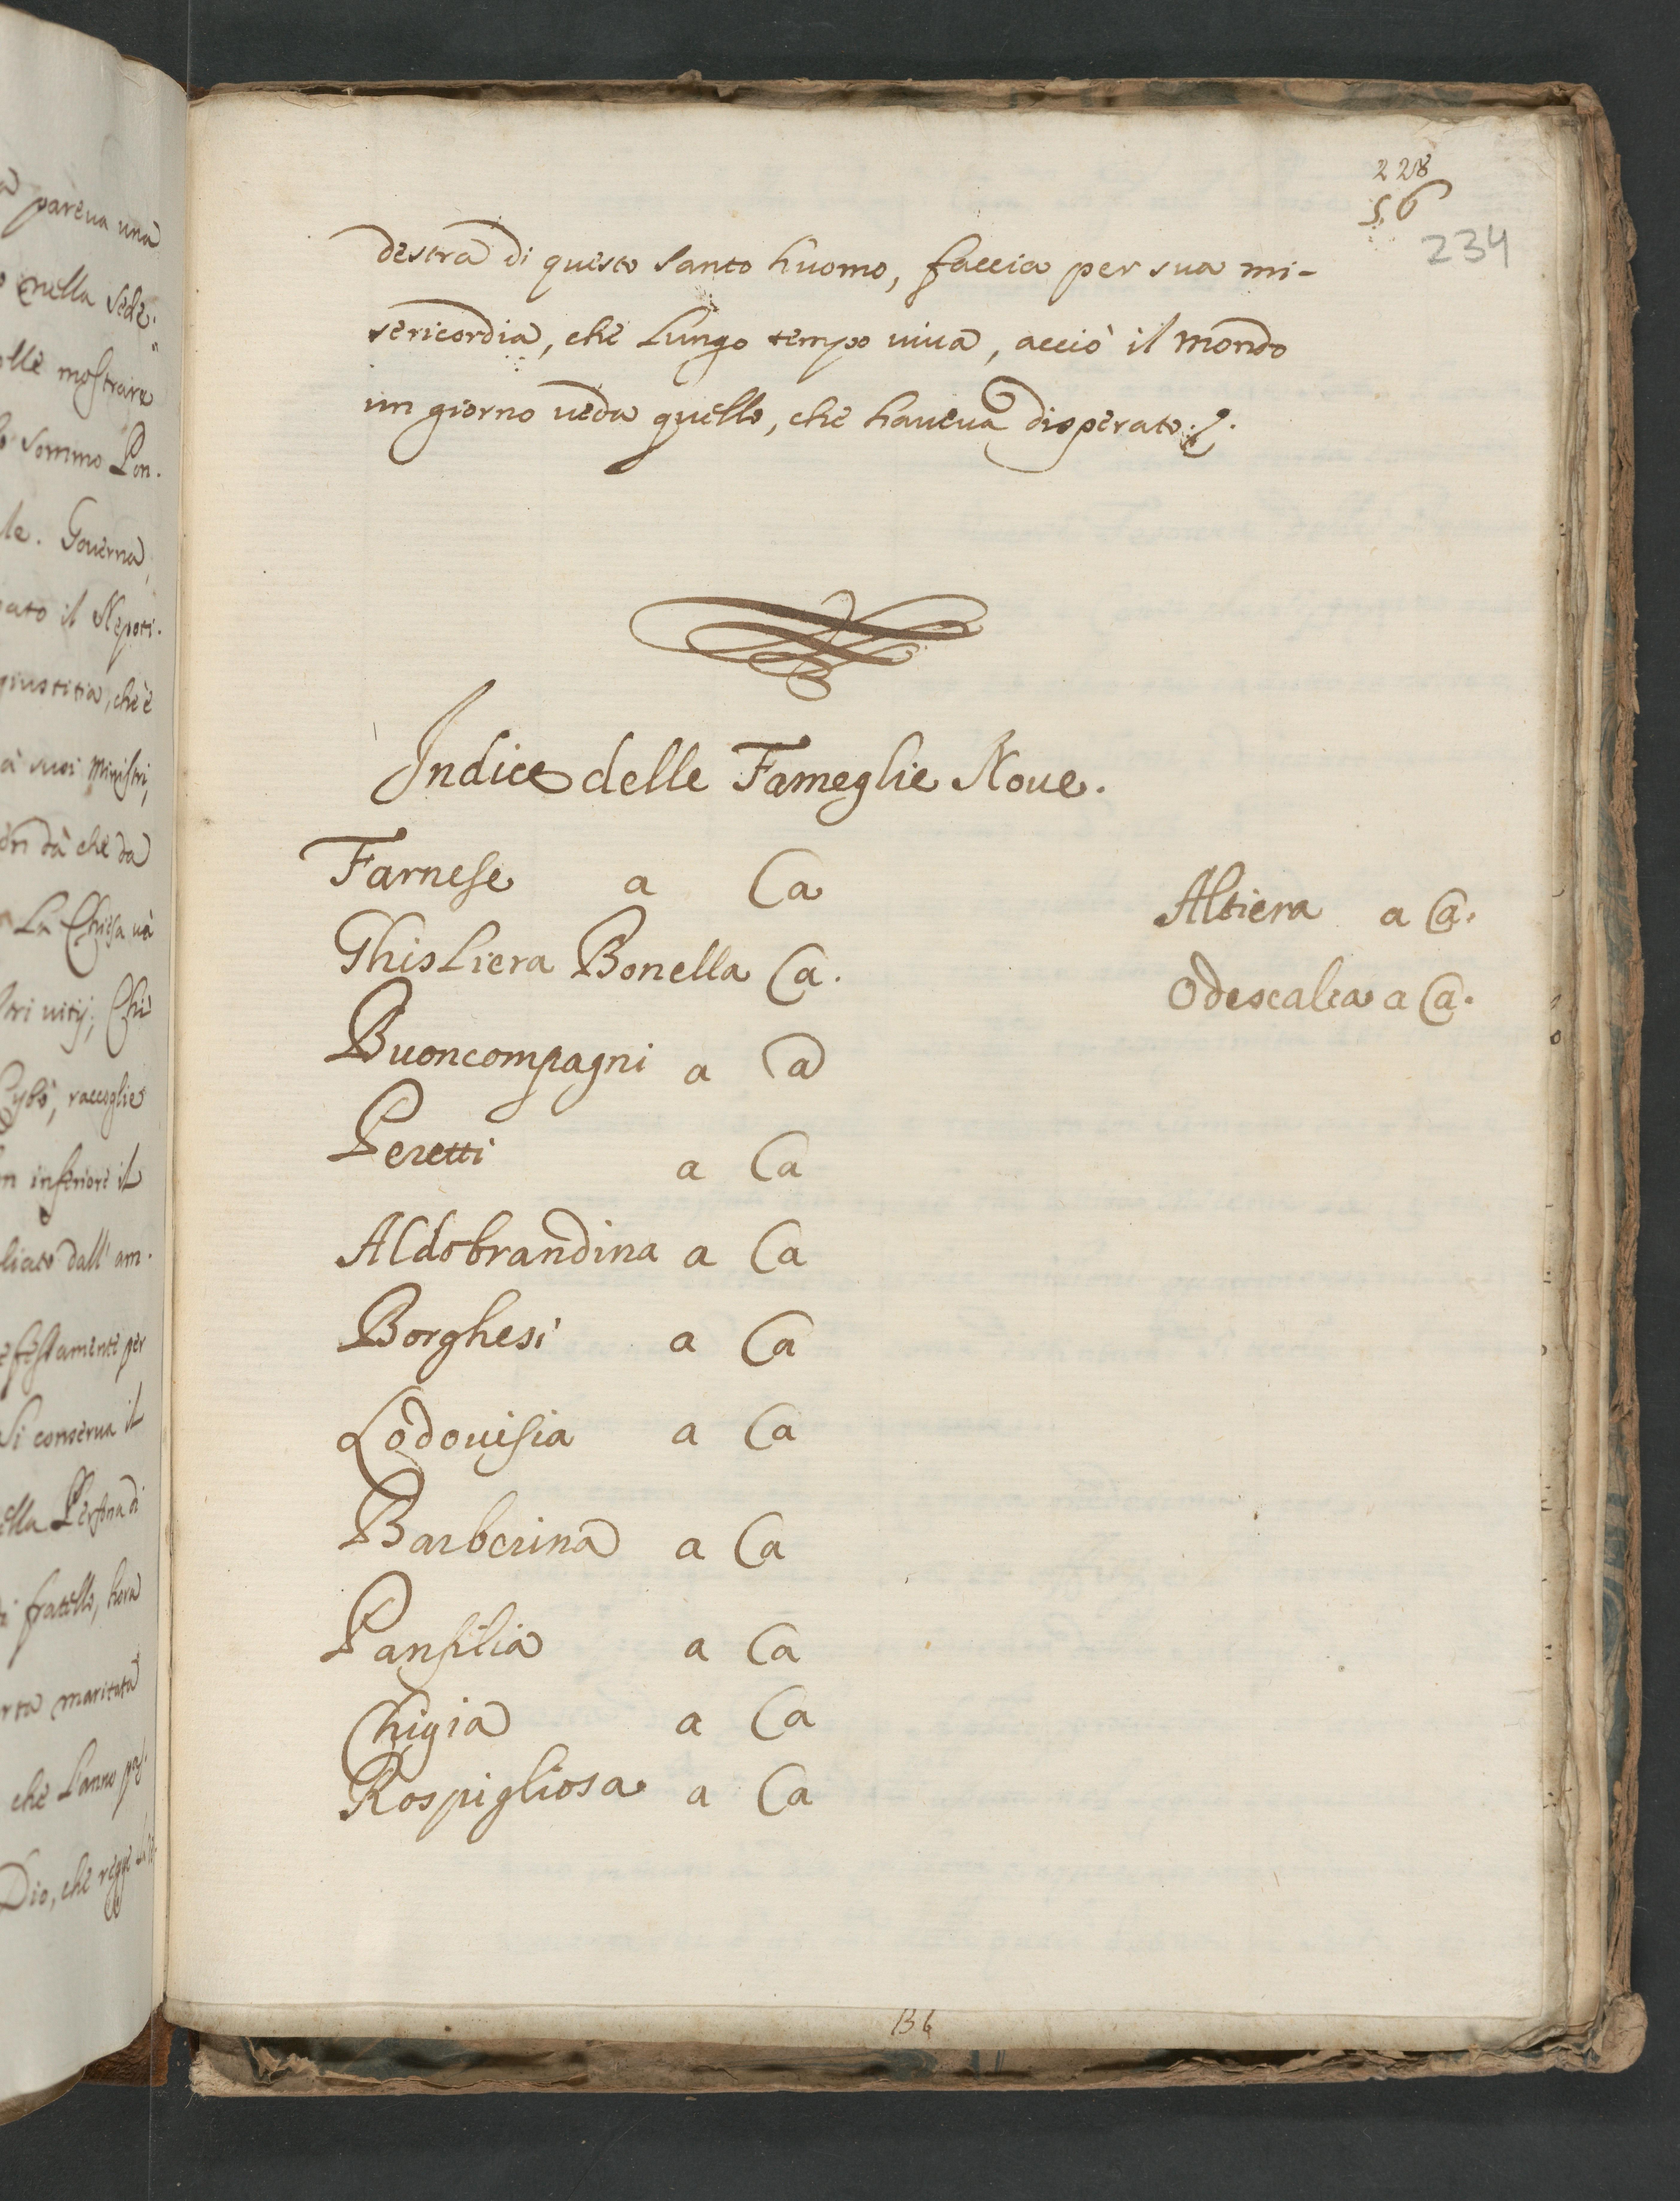 a pareua una
nella Sede.
mostrare
Sommo Pon.
le. Gouerna,
ato il Nepoti.
giustitia, che è
a suoi Ministri,
dà che da
La Chiesa uà
uitij; Chi
Cybò, raccoglie
inferiore il
dall' am.
per
Si conserua il
ella Persona di
fratello, hora
maritata
che l'anno pas.
Dio, che regge
228
56
234
destra di questo santo huomo, faccia per sua mi-
sericordia, che lungo tempo uiua, acciò il mondo
un giorno ueda quello, che haueua disperato.
Indice delle Fameglie Noue.
Farnese a Ca
Ghisliera Bonella Ca.
Buoncompagni a Ca
Peretti a Ca
Aldobrandina a Ca
Borghesi a Ca
Lodouisia a Ca
Barberina a Ca
Panfilia a Ca
Chigia a Ca
Rospigliosa a Ca
Altiera a Ca.
Odescalca a Ca.
136